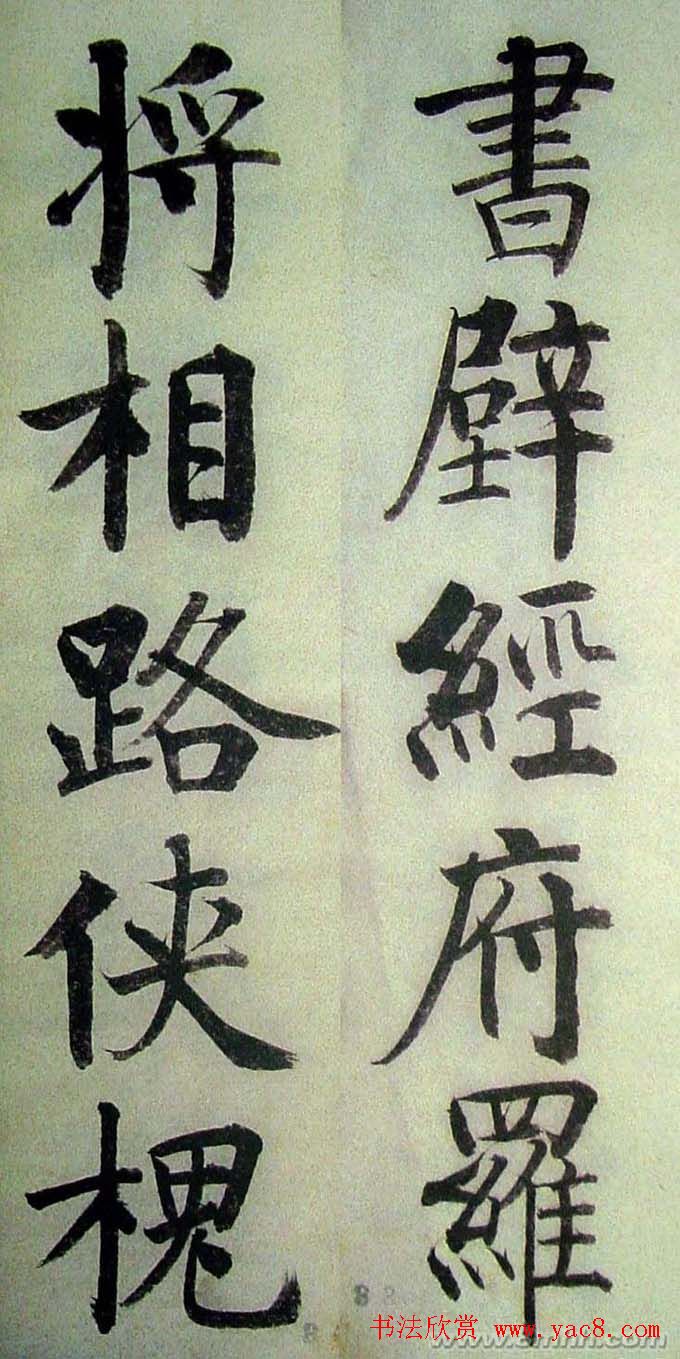 書壁經府羅
将相路侠槐
书法欣赏 www.yac8.com